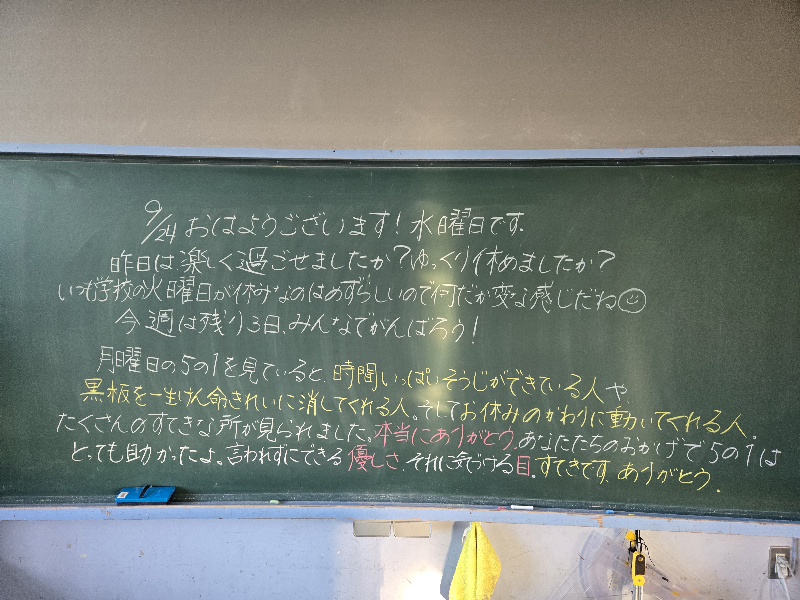 9/24 おはようございます！水曜日です.
昨日は楽しく過ごせましたか？ゆっくり休めましたか？
いつも学校の火曜日が休みなのはめずらしいので何だか変な感じだね☺
今週は残り3日、みんなでがんばろう！
月曜日の5の1を見ていると、時間いっぱいそうじができている人や
黒板を一生けん命きれいに消してくれる人。そしてお休みのかわりに動いてくれる人。
たくさんのすてきな所が見られました。本当にありがとう。あなたたちのおかげで5の1は
とっても助かったよ。言われずにできる優しさ、それに気づける目。すてきです。ありがとう.